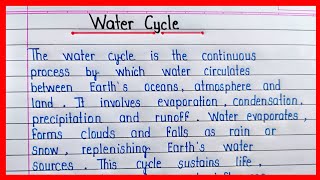 Water Cycle
The water cycle is the continuous
process by which water circulates
between Earth's oceans, atmosphere and
land. It involves evaporation, condensation,
precipitation and runoff. Water evaporates,
forms clouds and falls as rain or
snow, replenishing Earth's water
sources. This cycle sustains life,